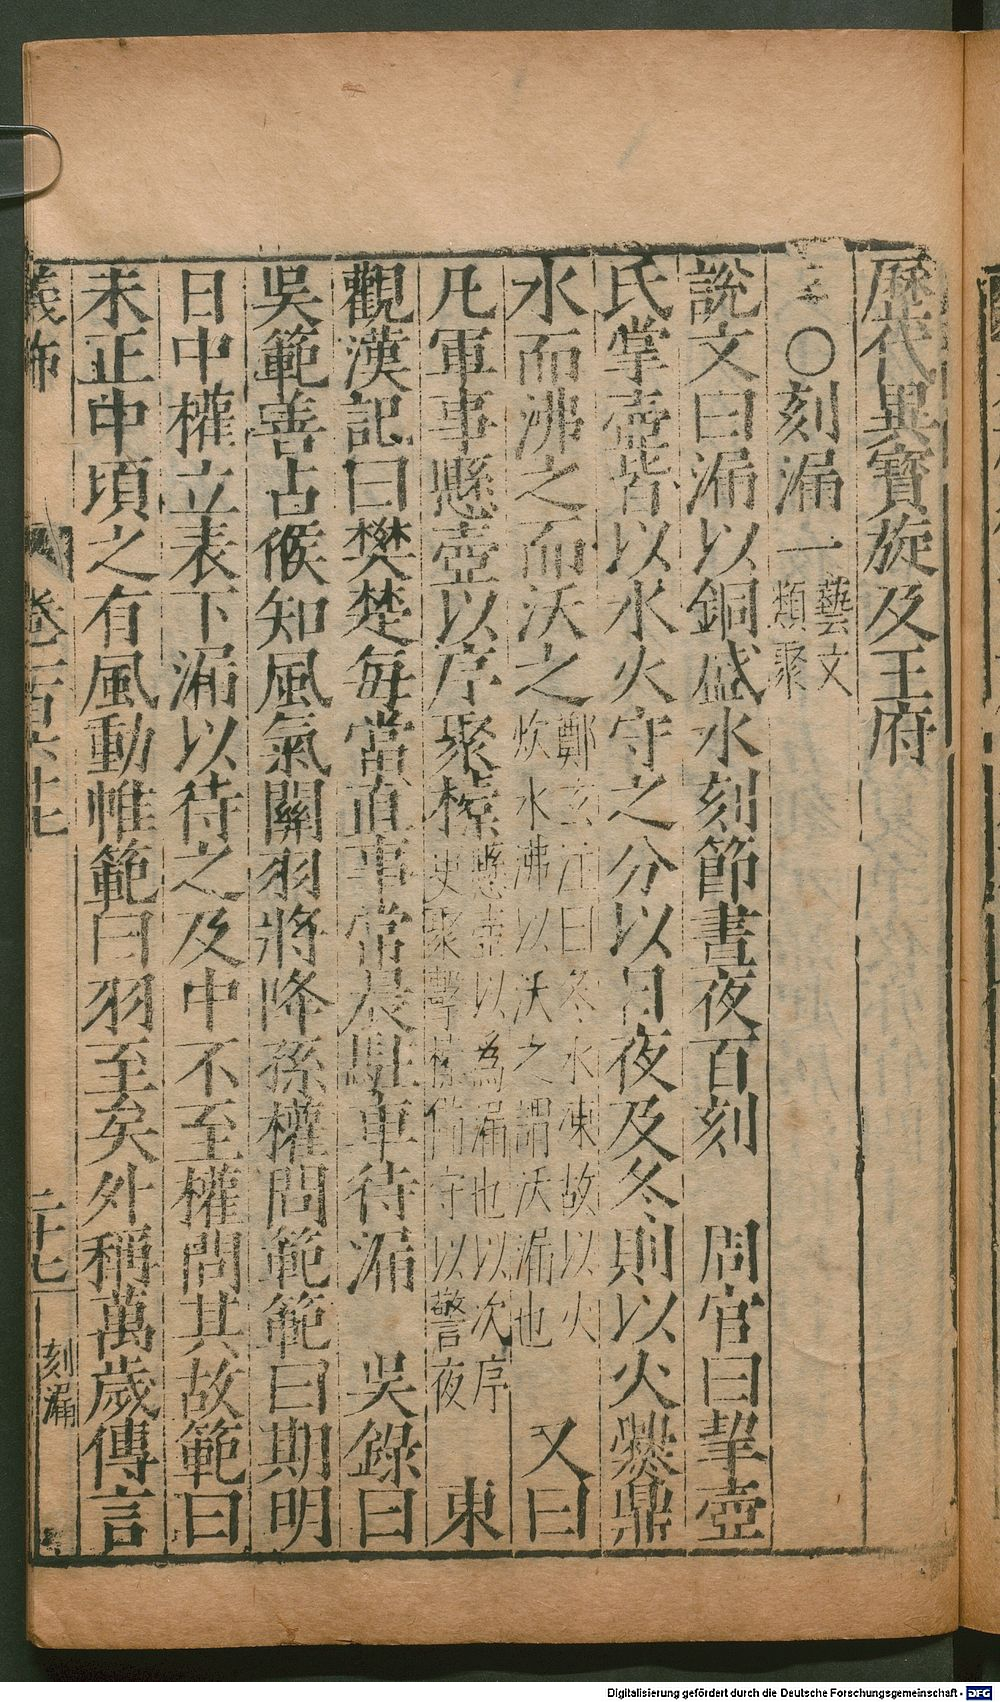 歷代異寶旋及王府
〇刻漏一藝文類聚
說文曰漏以銅盛水刻節晝夜百刻 周官曰挈壺
氏掌壺皆以水火守之分以日夜及冬則以火爨鼎
水而沸之而沃之鄭玄注曰冬水凍故以火炊水沸以沃之謂沃漏也 又曰
凡軍事懸壺以序聚㯓懸壺以為漏也以次序更聚擊㯓備守以警夜 東
觀漢記曰樊楚每當直事常晨駐車待漏 吳錄曰
吳範善占候知風氣關羽將降孫權問範範曰期明
日中權立表下漏以待之及中不至權問其故範曰
未正中頃之有風動帷範曰羽至矣外稱萬歲傳言
卷一百六十七
二十七
刻漏
Digitalisierung gefördert durch die Deutsche Forschungsgemeinschaft - DFG